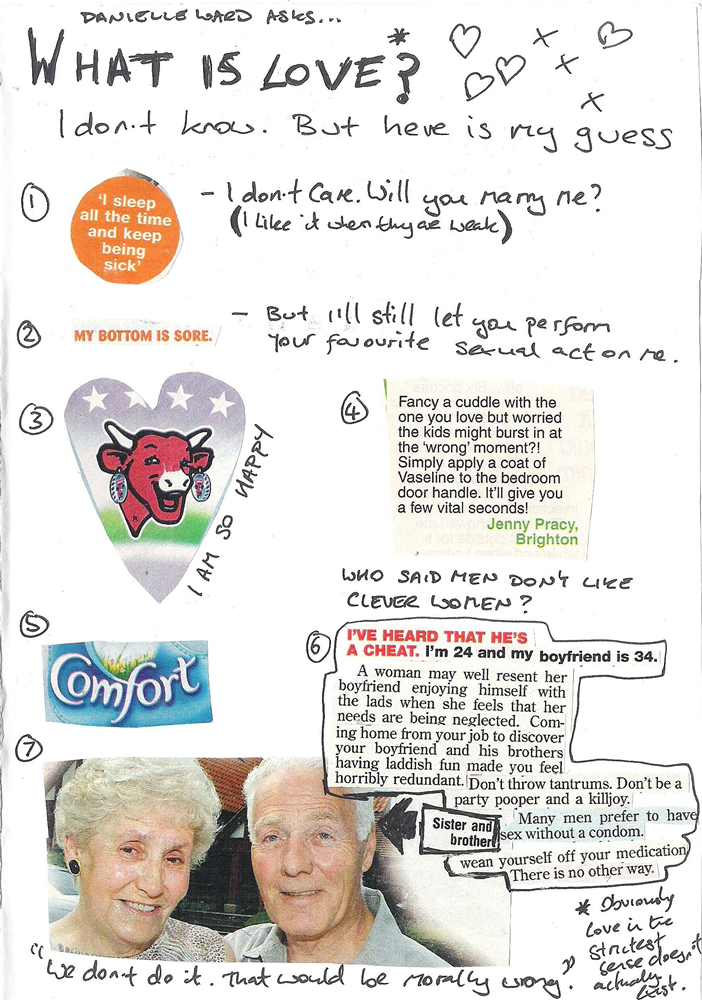 DANIELLE WARD ASKS...
WHAT IS LOVE*?
I don't know. But here is my guess
1
'I sleep
all the time
and keep
being
sick'
- I don't care. Will you marry me?
(I like it when they are weak)
2
MY BOTTOM IS SORE.
- But I'll still let you perform
your favourite sexual act on me.
3
I AM SO HAPPY
4
Fancy a cuddle with the
one you love but worried
the kids might burst in at
the 'wrong' moment?!
Simply apply a coat of
Vaseline to the bedroom
door handle. It'll give you
a few vital seconds!
Jenny Pracy,
Brighton
5
Comfort
WHO SAID MEN DON'T LIKE
CLEVER WOMEN?
6
I'VE HEARD THAT HE'S
A CHEAT. I'm 24 and my boyfriend is 34.
A woman may well resent her
boyfriend enjoying himself with
the lads when she feels that her
needs are being neglected. Com-
ing home from your job to discover
your boyfriend and his brothers
having laddish fun made you feel
horribly redundant. Don't throw tantrums. Don't be a
party pooper and a killjoy.
Many men prefer to have
sex without a condom.
wean yourself off your medication
There is no other way.
7
Sister and
brother
"We don't do it. That would be morally wrong."
* Obviously
love in the
strictest
sense doesn't
actually
exist.